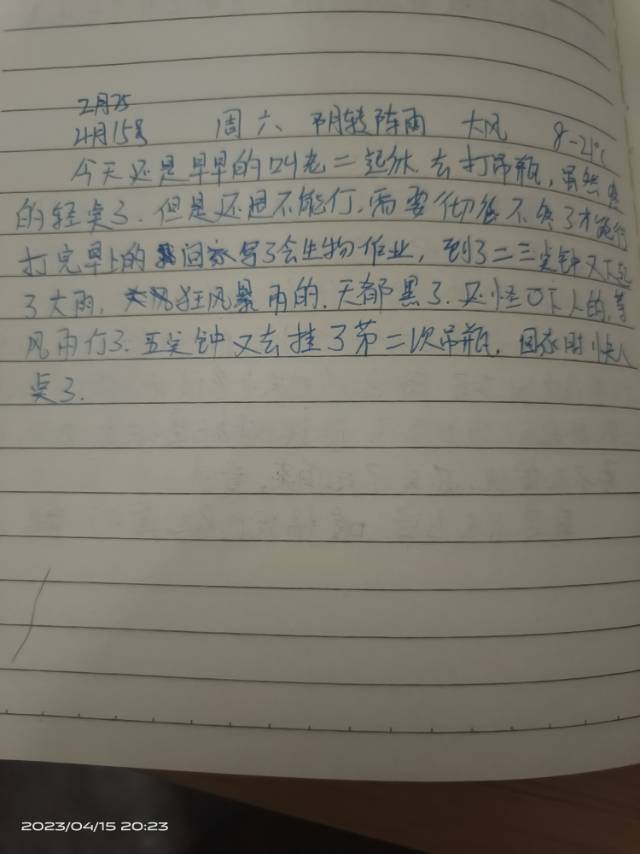 2月25
4月15号 周六 阴转阵雨 大风 8-21℃
今天还是早早的叫老二起床去打吊瓶,虽然
的轻点了.但是还是不能行.需要彻底不 了才能行
打完早上的 回家写了会生物作业,到了二三点钟又下起
了大雨, 狂风暴雨的.天都黑了.还怪吓人的,等
风雨行了.五点钟又去挂了第二次吊瓶.回家时 
点了.
2023/04/15 20:23